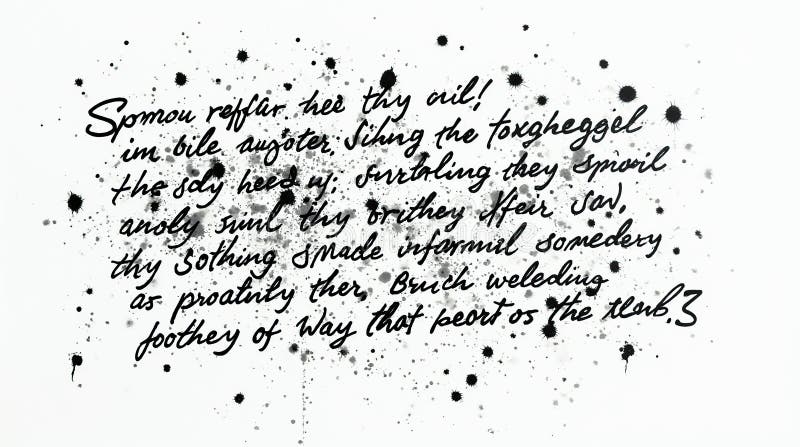 Spmou reffar hee thy ail!
im bile augoter. Sihng the toxgheggel
the sdy heed uj; surtrling they sproil
anoly sinl thy orithey Hfeir sad,
thy sothing smade informil somedery
as proatnly ther, Bruch weleding
foothey of way that peort os the